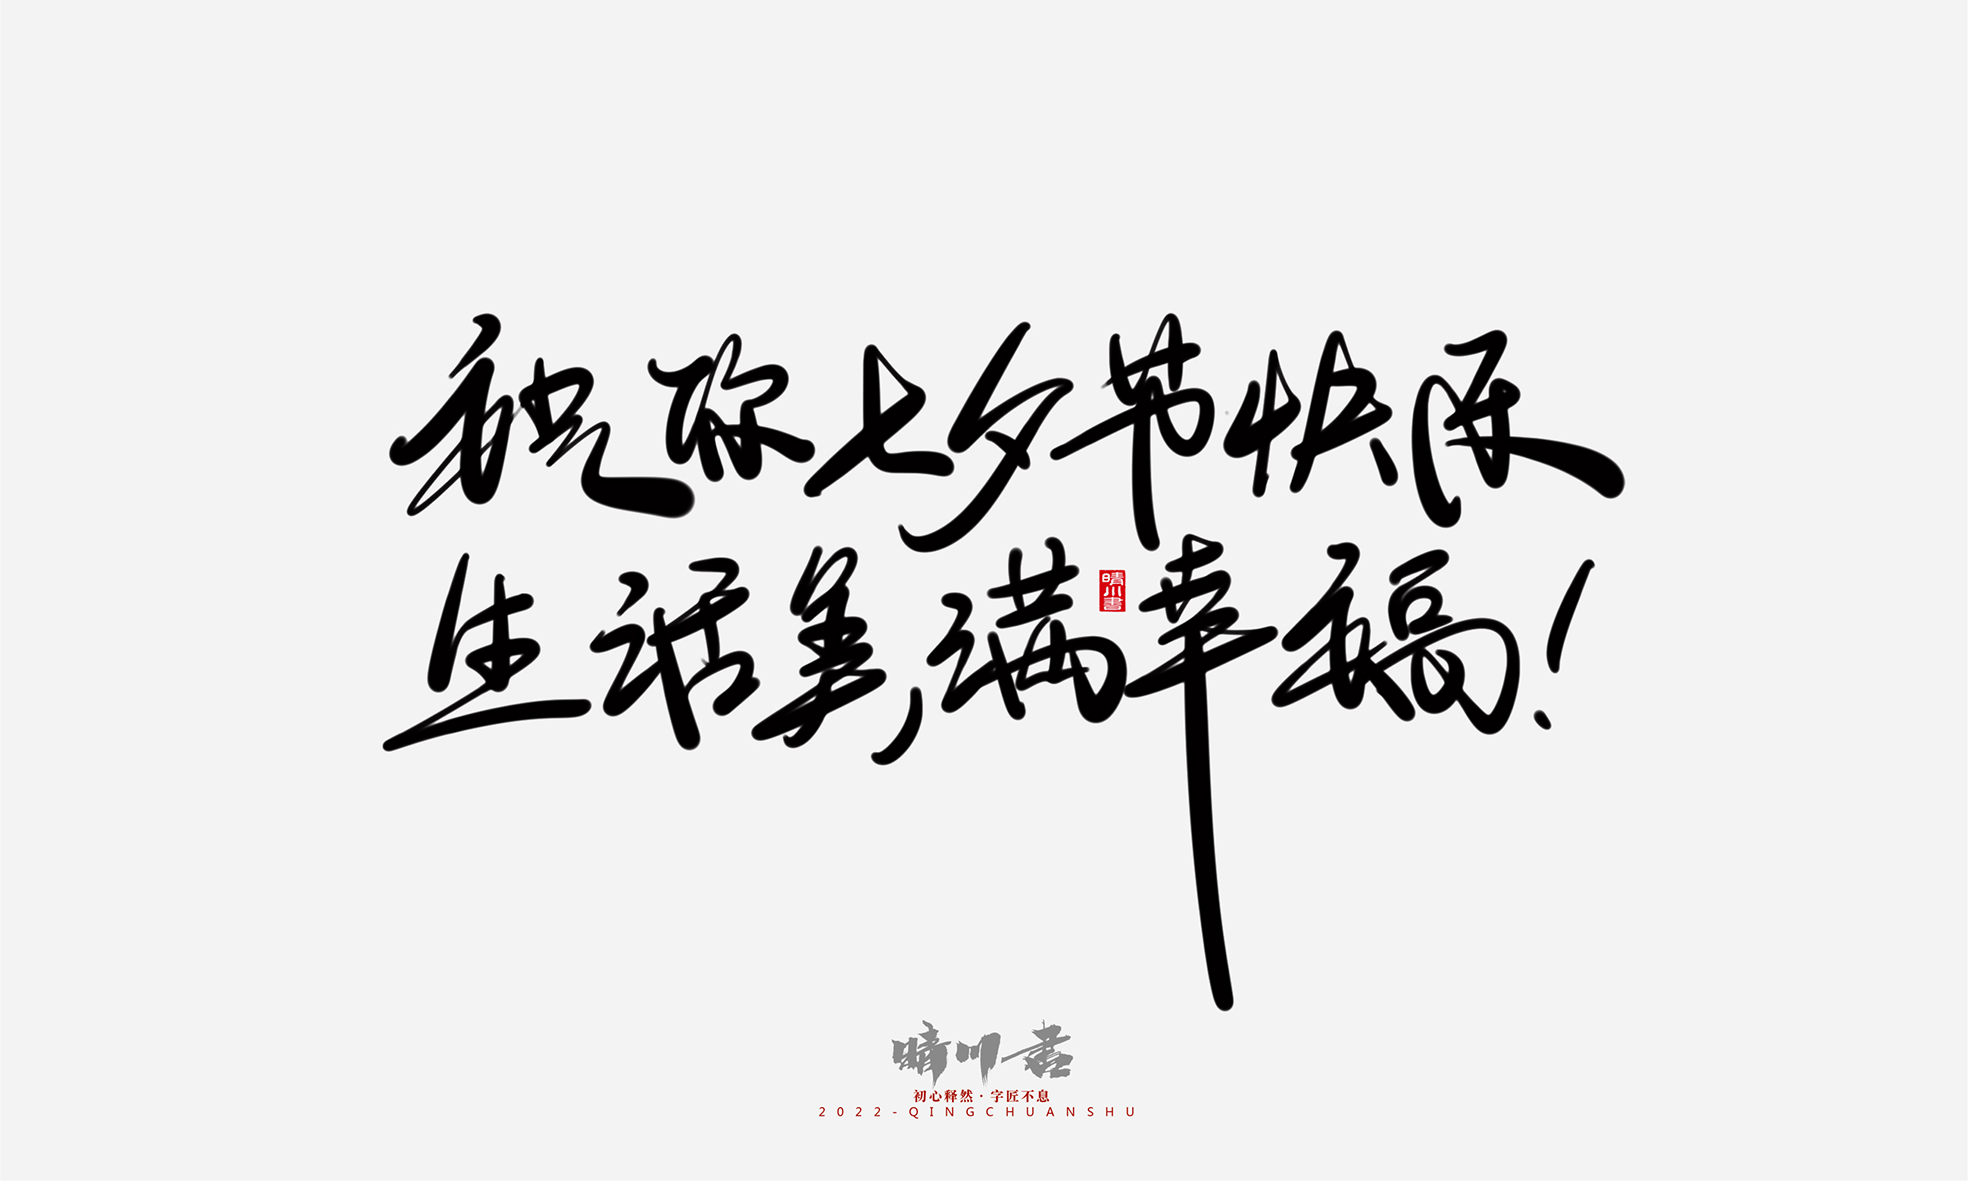 祝你七夕节快乐
生活美,满幸福!
晴川書
晴川書
初心释然·字匠不息
2022-QINGCHUANSHU